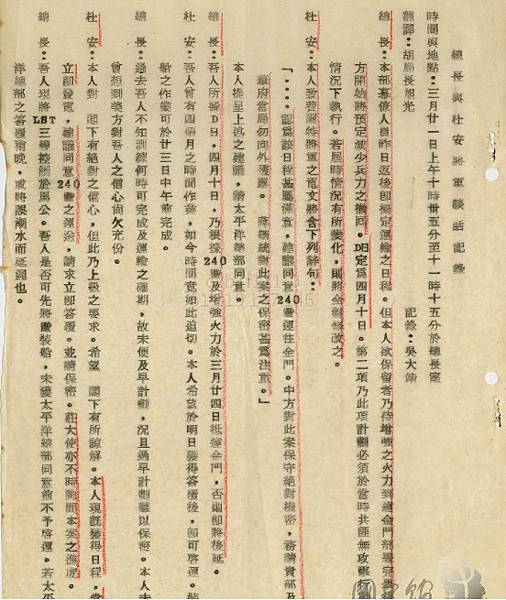 總長與杜安將軍談話記錄
時間與地點：三月廿一日上午十時卅五分至十一時十五分於總長室
翻譯：胡局長旭光　記錄：吳大鈞
總長：本部幕僚人員昨日返後即擬定運輸之日程。但本人欲保留者乃待增強之火力到達金門部署完
方開始將預定減少兵力之撤回。D日定爲四月十日。第二項乃此項計劃必須於當時共匪無攻
情況下執行。若屆時情況有所變化，則將全部修改之。
杜安：本人致費爾特將軍之電文將含下列辭句：
「……認爲該日程甚屬滿意，建議同意240砲運往金門。中方對此案保守絕對機密，務請貴部及
華府當局勿向外洩露。蔣總統對此案之保密甚爲注意。」
本人提呈上述之建議，請太平洋總部同意。
總長：吾人所擬D日，四月十日，乃根據240砲及增強火力於三月廿四日抵達金門，否則即將後延。
杜安：吾人曾有四個月之時間作業，如今時間竟如此迫切。本人希望於明日獲得答覆後，即可啓運。
船之作業可於廿三日中午前完成。
總長：過去吾人不知訓練何時可完成及運輸之確期，故未便及早計劃，況且過早計劃難以保密。本人
曾想到美方對吾人之信心尚欠充份。
杜安：本人對閣下有絕對之信心，但此乃上級之要求。希望閣下有所諒解。本人現既獲得日程，當
立即發電，建議同意240砲之運送，請求立即答覆。並請保密。莊大使亦不時詢問本案之進度。
總長：吾人現將LST三艘控制於馬公。吾人是否可先將砲裝船，未獲太平洋總部同意前不予啓運。若太平
洋總部之答覆稍晚，或將誤潮水而延誤也。